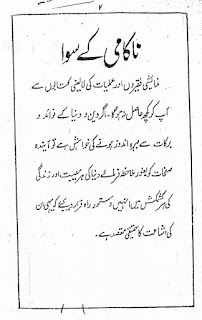 ۲
ناکامی کے سوا
نمائشی فقیروں اور عملیات کی لایعنی کتابوں سے
آپ کو کچھ حاصل نہ ہوگا۔ اگر دین و دنیا کے فوائد و
برکات سے بہرہ اندوز ہونے کی خواہش ہے تو آیندہ
صفحات کو بغور ملاحظہ فرمائیے دنیا کی ہر مصیبت اور زندگی
کی ہر کشمکش میں انہیں دستور راہ قرار دیجئے کہ یہی ان
کی اشاعت کا حقیقی مقصد ہے۔